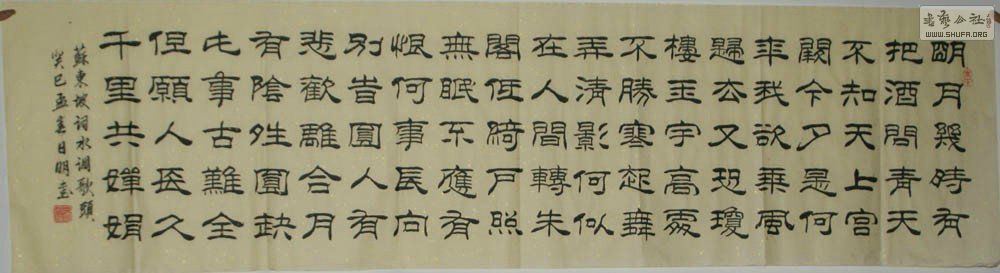 明月幾時有
把酒問青天
不知天上宮
闕今夕是何
年我欲乘風
歸去又恐瓊
樓玉宇高處
不勝寒起舞
弄清影何似
在人間轉朱
閣低綺戶照
無眠不應有
恨何事長向
別旹圓人有
悲歡離合月
有陰晴圓缺
此事古難全
但願人長久
千里共嬋娟
蘇東坡詞水调歌頭
癸巳孟春日明
书艺公社
WWW.SHUFA.ORG